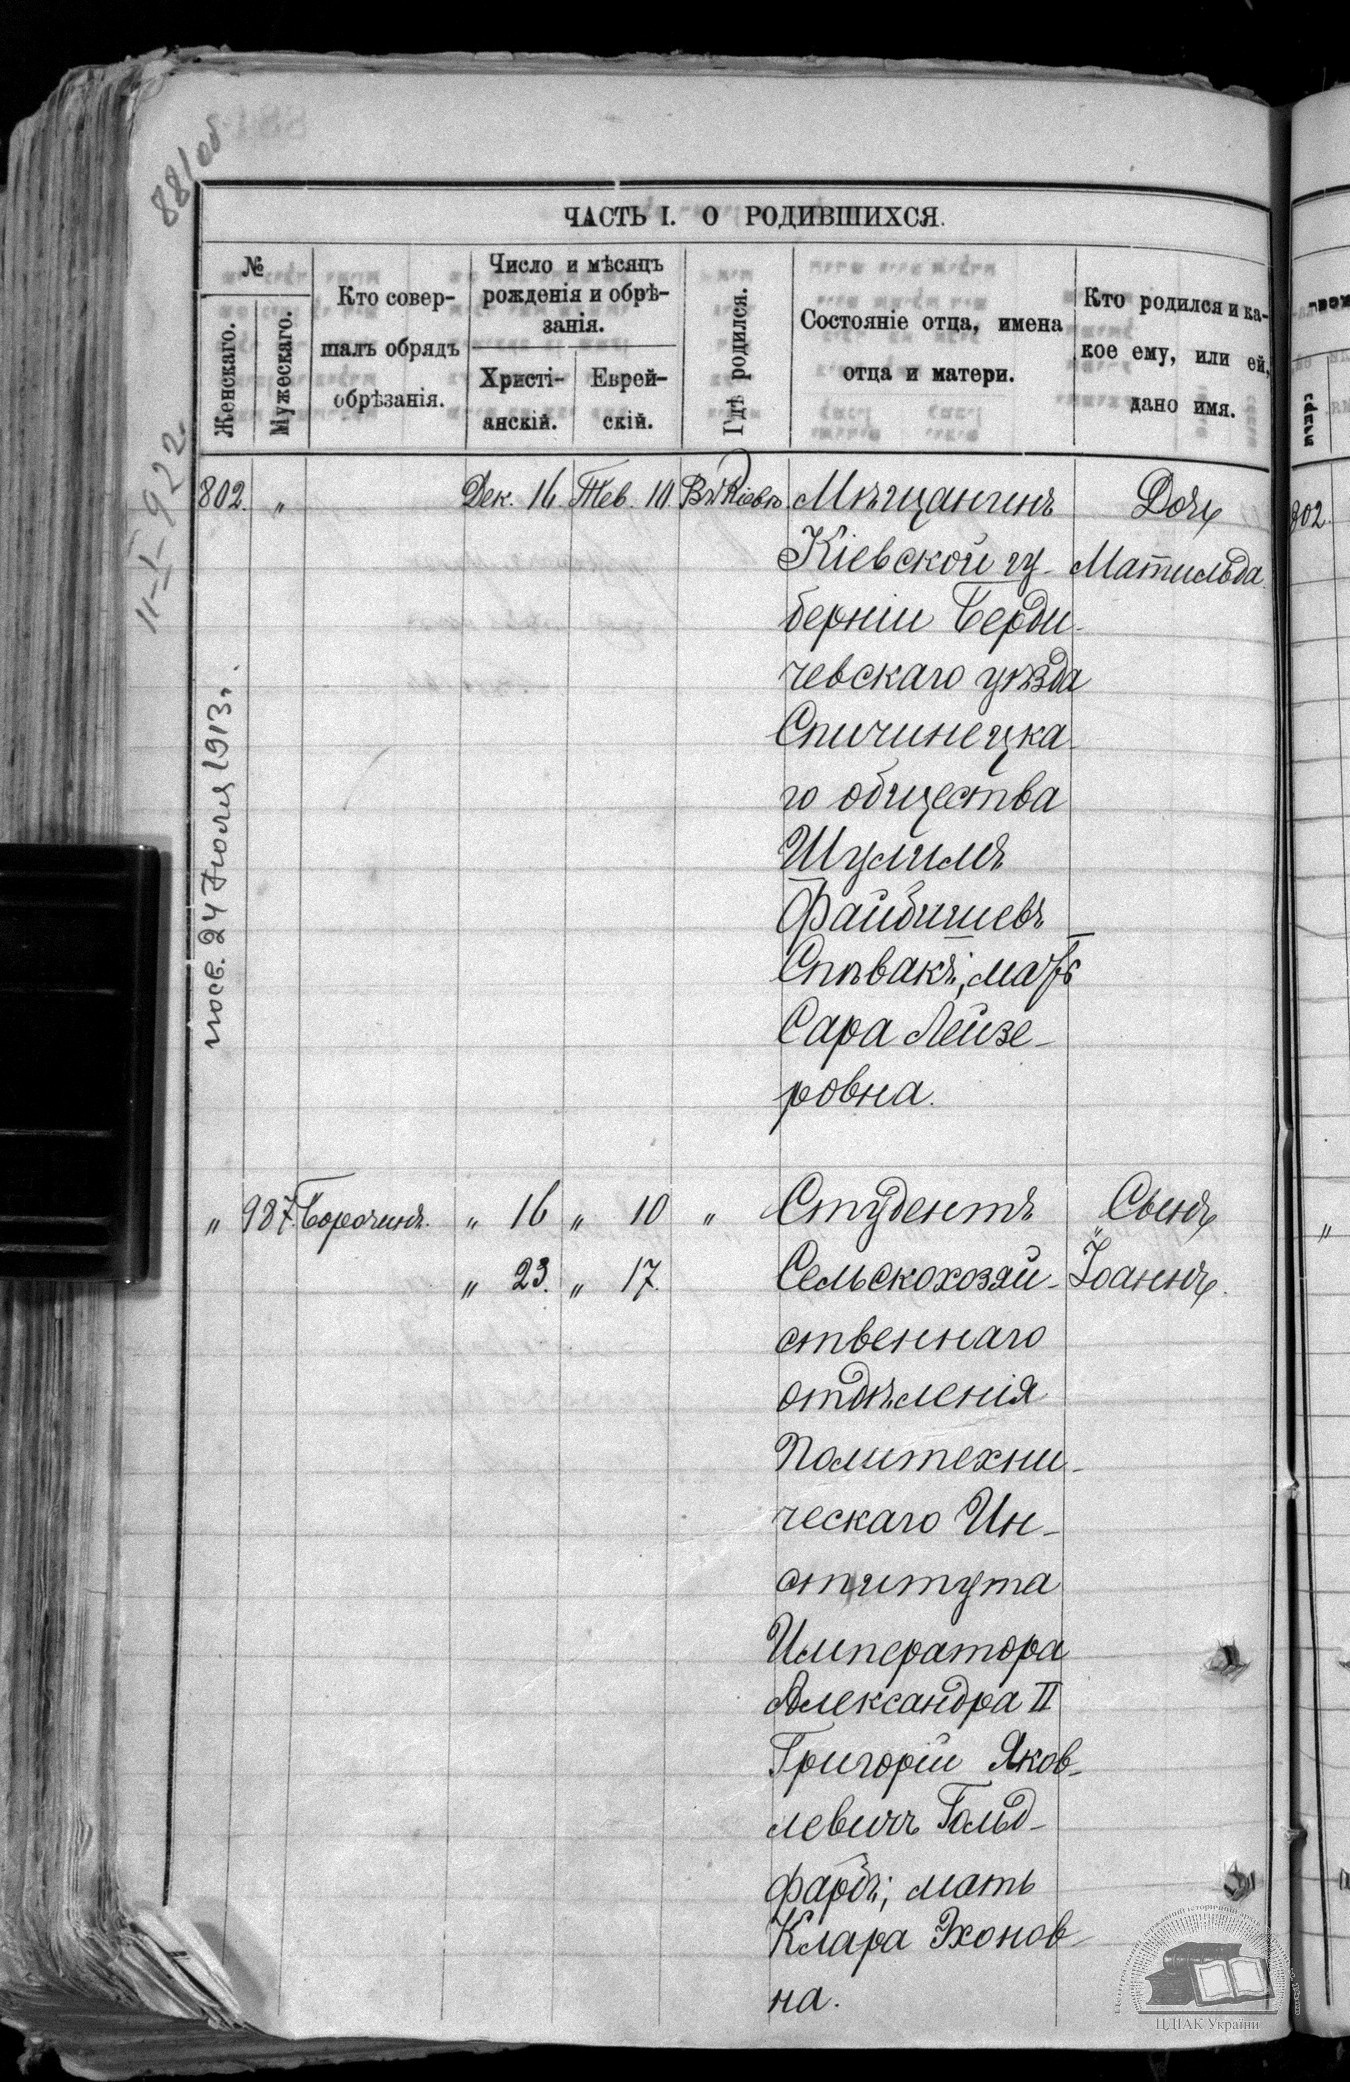 881об
ЧАСТЬ I. О РОДИВШИХСЯ.
№
Женскаго.
Мужескаго.
Кто совер-
шалъ обрядъ
обрѣзанія.
Число и мѣсяцъ
рожденія и обрѣ-
занія.
Христі-
анскій.
Еврей-
скій.
Гдѣ родился.
Состояніе отца, имена
отца и матери.
Кто родился и ка-
кое ему, или ей,
дано имя.
11-I-922.
24 Іюля 1913г.
802. " Дек. 16. Тев. 10. Въ Кіевѣ. Мѣщанинъ Дочь
Кіевской гу- Матильда.
берніи Берди-
чевскаго уѣзда
Спичинецка-
го общества
Шулимъ
Файбишевъ
Спѣвакъ, мать
Сара Лейзе-
ровна.
" 987. Борочинъ. " 16 " 10 " Студентъ Сынъ
" 23. " 17. Сельскохозяй- Іоаннъ.
ственнаго
отдѣленія
Политехни-
ческаго Ин-
ститута
Императора
Александра II
Григорій Яков-
левичъ Гольд-
фарбъ; мать
Клара Эхонов-
на.
802.
"
ЦДІАК України